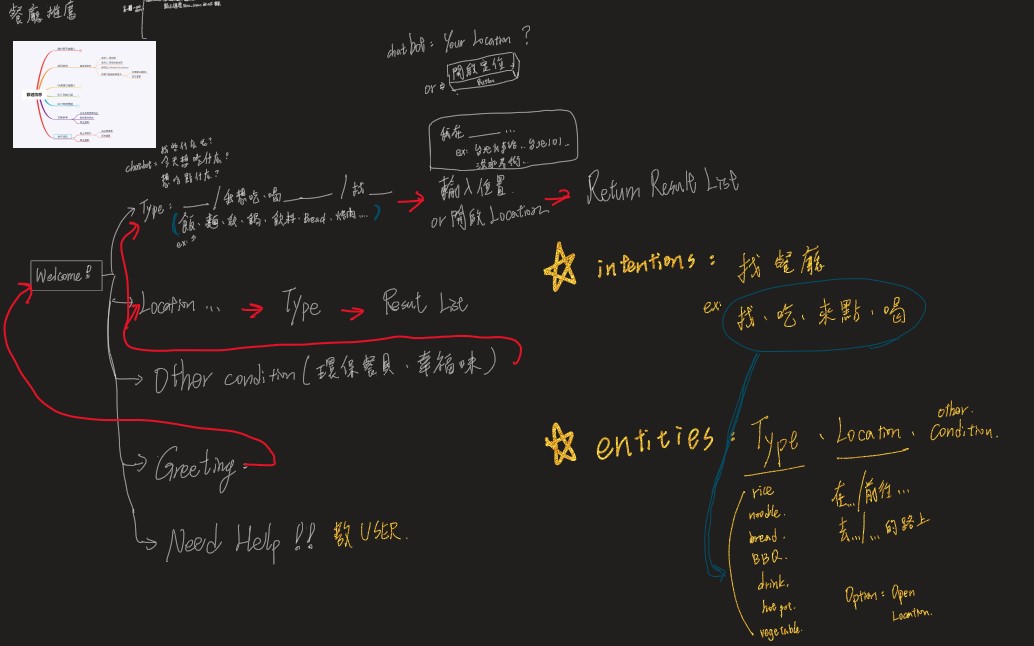 餐廳推薦
chatbot: Your Location ?
開啟定位
Button
or
我在 ____ ...
chatbot:
今天想吃什麼?
想吃點什麼?
Type: ____ / 我想吃、喝 ____ / 找 ____
(飯、麵、飲、鍋、飲料、Bread、烤肉...)
ex:
輸入位置
or 開啟 Location
Return Result List
Welcome !!
Location ... → Type → Result List
Other condition (環保餐具、幸福味)
Greeting
Need Help !! 教 USER.
intentions: 找餐廳
ex: 找、吃、來點、喝
entities: Type、Location、other Condition.
rice
noodle.
bread.
BBQ.
drink.
hot pot.
vegetable.
在.../前往...
去.../...的路上
Option: Open
Location.